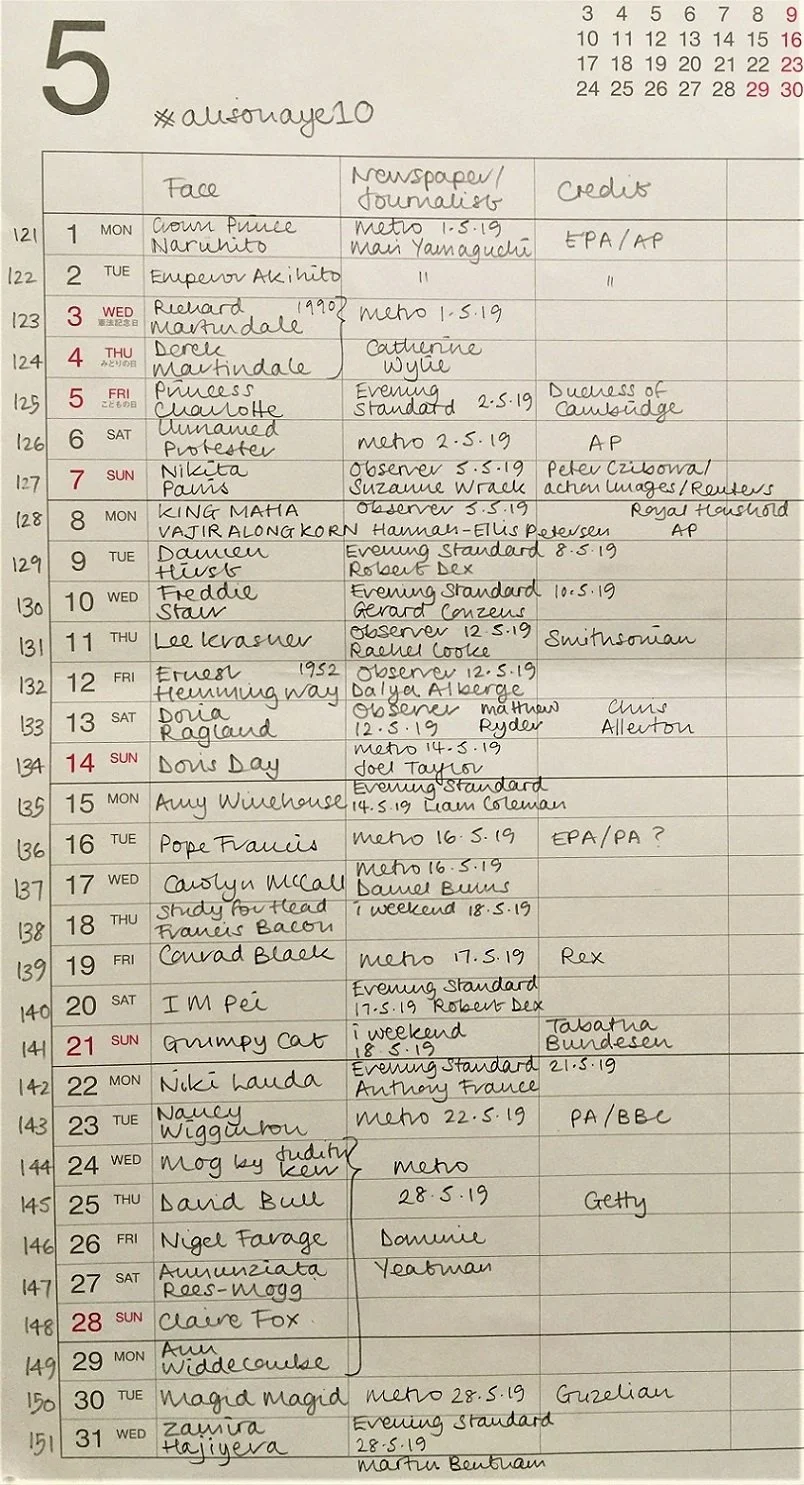 5
3 4 5 6 7 8 9
10 11 12 13 14 15 16
17 18 19 20 21 22 23
24 25 26 27 28 29 30
#alisonaye10
Face Newspaper/ Journalist Credit
121 1 MON Crown Prince Naruhito Metro 1.5.19 Mari Yamaguchi EPA/AP
122 2 TUE Emperor Akihito " "
123 3 WED 憲法記念日 Richard Martindale 1990 Metro 1.5.19
124 4 THU みどりの日 Derek Martindale Catherine Wylie
125 5 FRI こどもの日 Princess Charlotte Evening Standard 2.5.19 Duchess of Cambridge
126 6 SAT Unnamed Protester Metro 2.5.19 AP
127 7 SUN Nikita Parris Observer 5.5.19 Suzanne Wrack Peter Cziborra/ action Images/Reuters
128 8 MON KING MAHA VAJIRALONGKORN Observer 5.5.19 Hannah-Ellis Petersen Royal Houshold AP
129 9 TUE Damien Hirst Evening Standard 8.5.19 Robert Dex
130 10 WED Freddie Starr Evening Standard 10.5.19 Gerard Conzens
131 11 THU Lee Krasner Observer 12.5.19 Rachel Cooke Smithsonian
132 12 FRI Ernest Hemmingway 1952 Observer 12.5.19 Dalya Alberge
133 13 SAT Doria Ragland Observer 12.5.19 Matthew Ryder Chris Allerton
134 14 SUN Doris Day Metro 14.5.19 Joel Taylor
135 15 MON Amy Winehouse Evening Standard 14.5.19 Liam Coleman
136 16 TUE Pope Francis Metro 16.5.19 EPA/PA ?
137 17 WED Carolyn McCall Metro 16.5.19 Daniel Burns
138 18 THU Study for Head Francis Bacon i weekend 18.5.19
139 19 FRI Conrad Black Metro 17.5.19 Rex
140 20 SAT I M Pei Evening Standard 17.5.19 Robert Dex
141 21 SUN Grumpy Cat i weekend 18.5.19 Tabatha Bundesen
142 22 MON Niki Lauda Evening Standard 21.5.19 Anthony France
143 23 TUE Nancy Wigginton Metro 22.5.19 PA/BBC
144 24 WED Mog by Judith Kerr Metro
145 25 THU David Bull 28.5.19 Getty
146 26 FRI Nigel Farage Dominic
147 27 SAT Annunziata Rees-Mogg Yeatman
148 28 SUN Claire Fox
149 29 MON Ann Widdecombe
150 30 TUE Magid Magid Metro 28.5.19 Guzelian
151 31 WED Zamira Hajiyeva Evening Standard 28.5.19
Martin Bentham